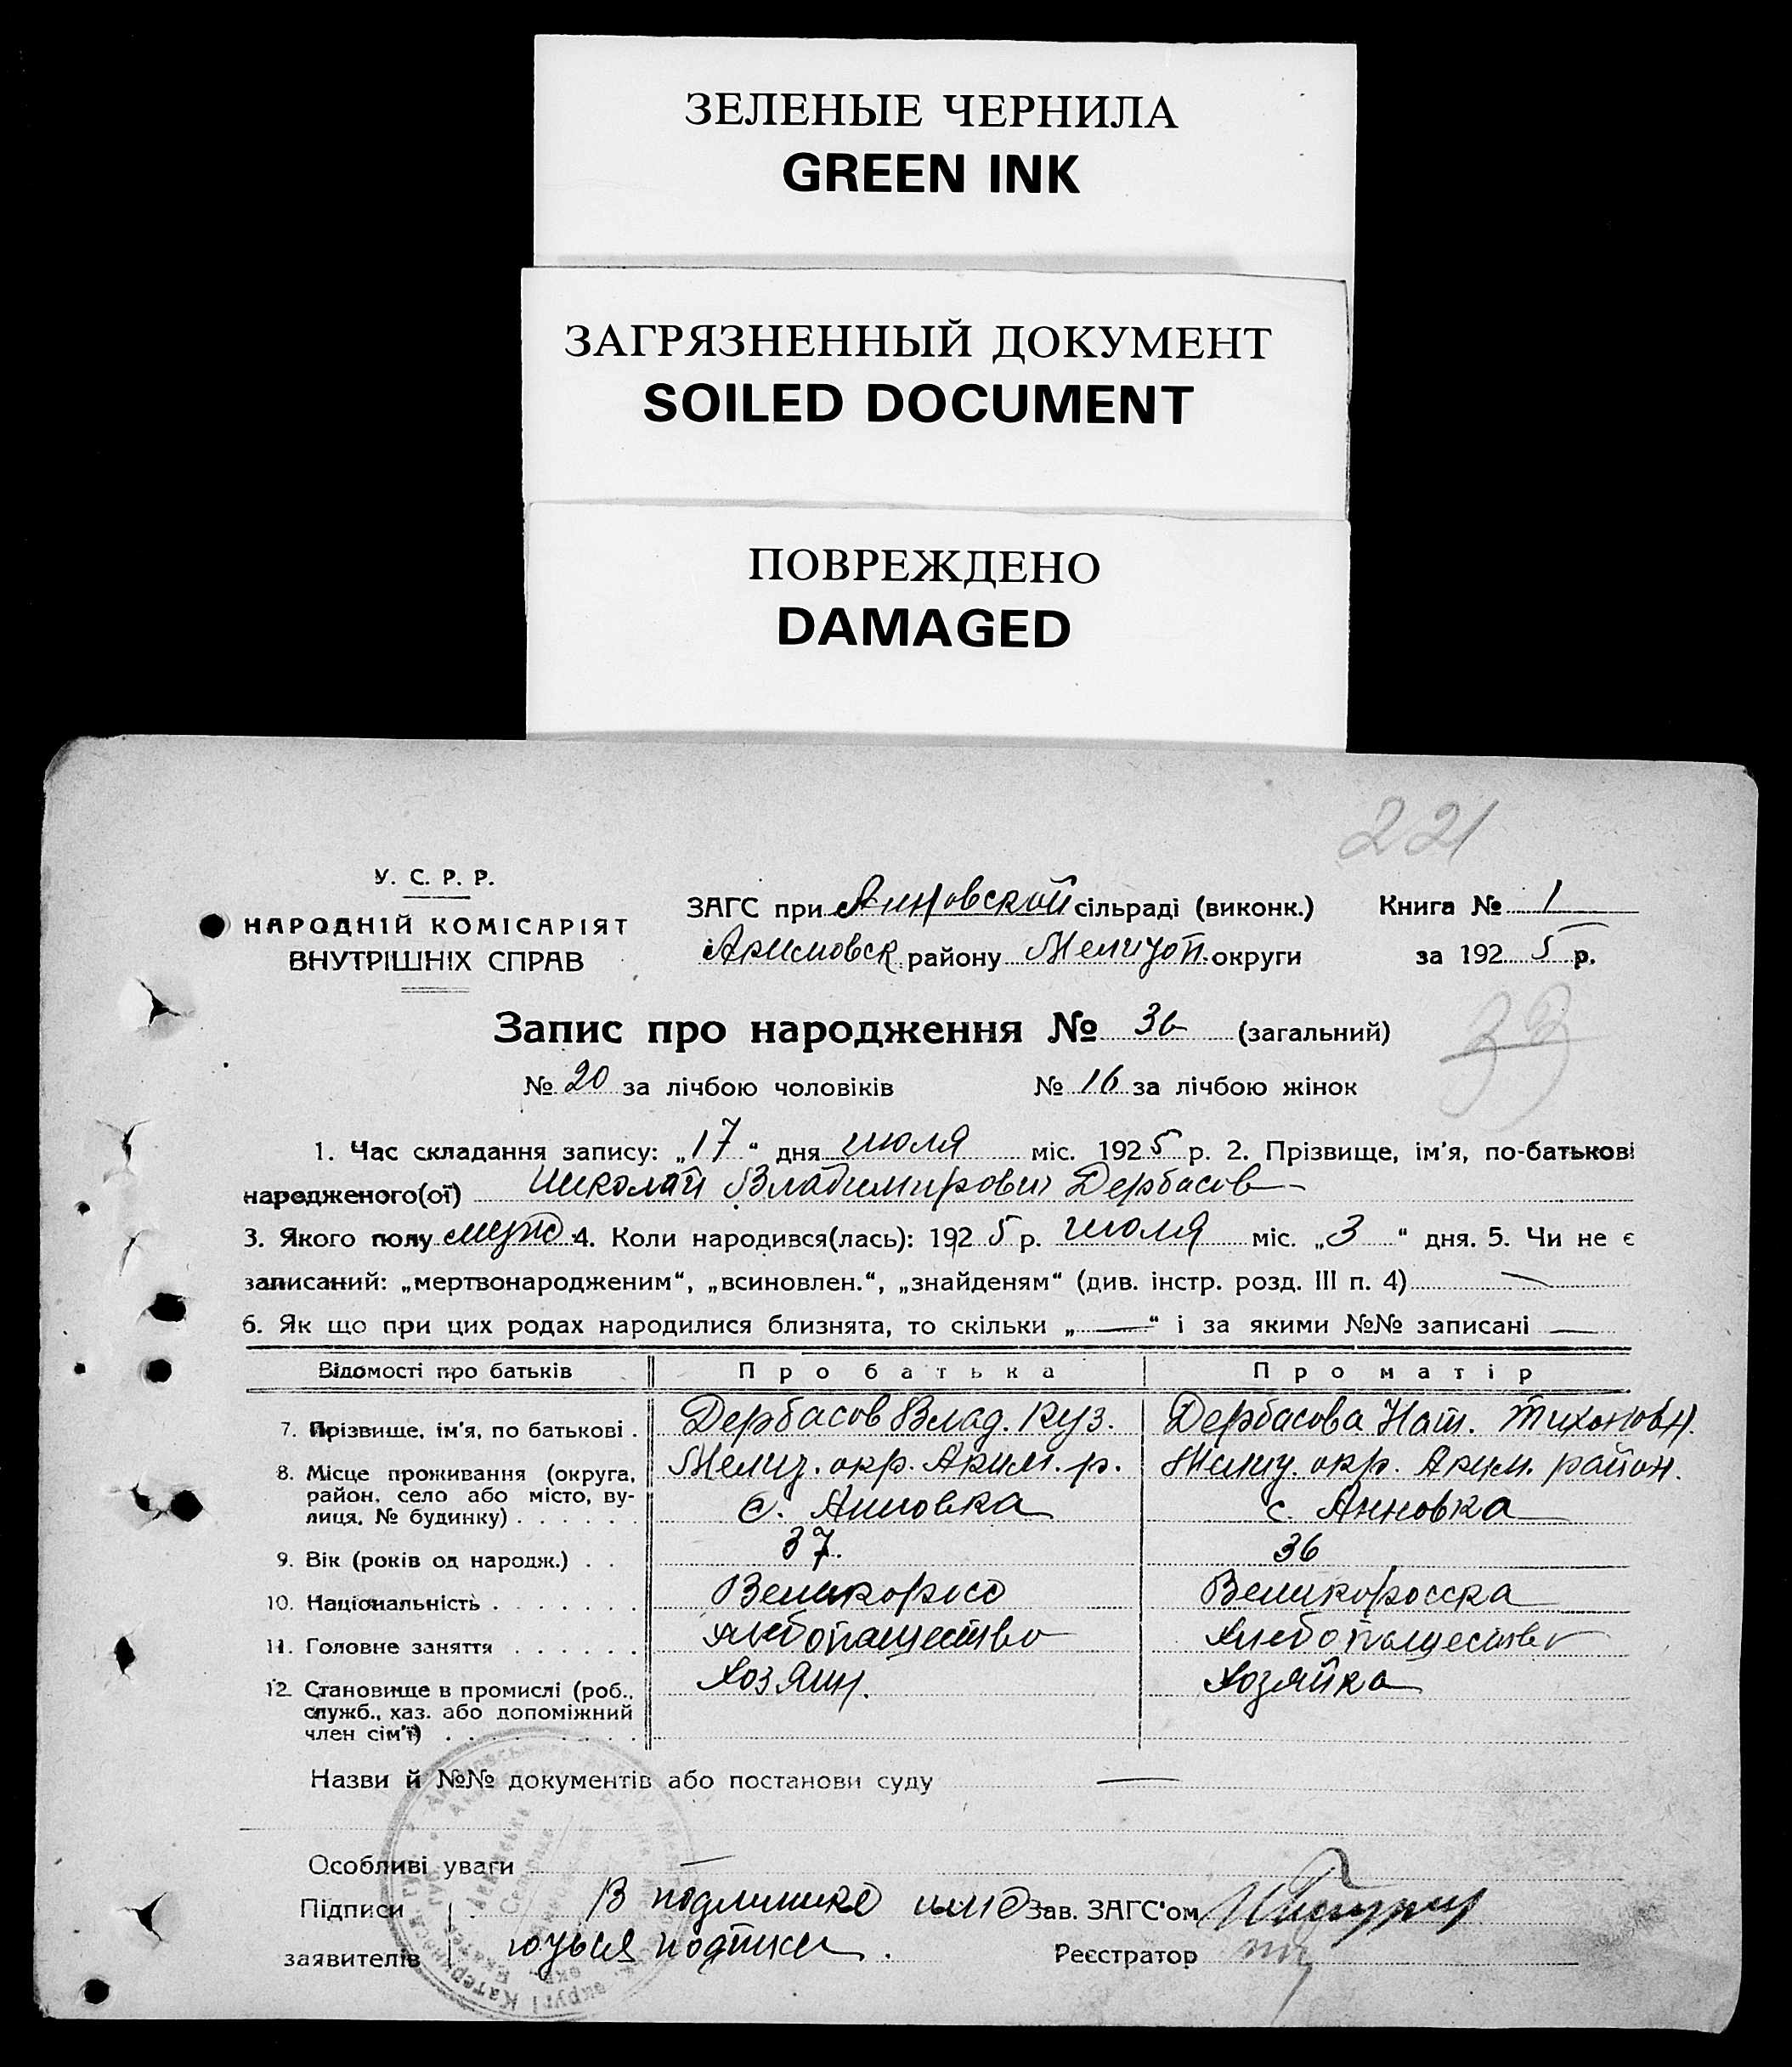 ЗЕЛЕНЫЕ ЧЕРНИЛА
GREEN INK
ЗАГРЯЗНЕННЫЙ ДОКУМЕНТ
SOILED DOCUMENT
ПОВРЕЖДЕНО
DAMAGED
221
У. С. Р. Р.
НАРОДНІЙ КОМІСАРІЯТ
ВНУТРІШНІХ СПРАВ
ЗАГС при Анновской сільраді (виконк.) Книга № 1
Акимовск. району Мелитоп. округи за 1925 р.
Запис про народження № 36 (загальний)
№ 20 за лічбою чоловіків № 16 за лічбою жінок
1. Час складання запису: „17“ дня июля міс. 1925 р. 2. Прізвище, ім'я, по-батькові
народженого(ої) Николай Владимирович Дербасов
3. Якого полу муж 4. Коли народився(лась): 1925 р. июля міс. „3“ дня. 5. Чи не є
записаний: „мертвонародженим“, „всиновлен.“, „знайденям“ (див. інстр. розд. III п. 4) —
6. Як що при цих родах народилися близнята, то скільки „—“ і за якими №№ записані —
Відомості про батьків Про батька Про матір
7. Прізвище, ім'я, по батькові . Дербасов Влад. Куз. Дербасова Нат. Тихоновн.
8. Місце проживання (округа, район, село або місто, вулиця, № будинку) Мелит. окр. Аким. р. Мелит. окр. Аким. район.
с. Анновка с. Анновка
9. Вік (років од народж.) . . 37. 36
10. Національність Великоросс Великоросска
11. Головне заняття Хлебопашество Хлебопашество
12. Становище в промислі (роб., служб., хаз. або допоміжний член сім'ї) Хозяин. Хозяйка
Назви й №№ документів або постанови суду —
Особливі уваги —
Підписи В подлинике име Зав. ЗАГС'ом
заявителів ються подписи. Реєстратор